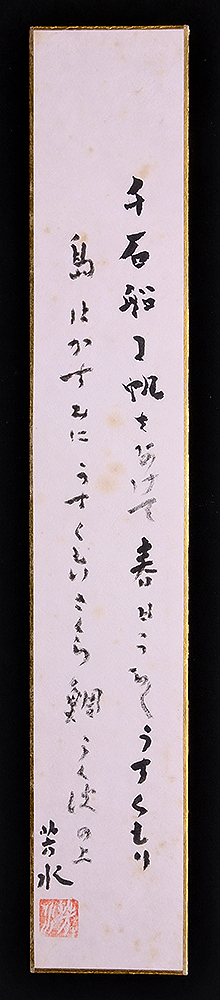 千石船に帆をあけて春日うら〱うすくもり
島はかすみにうすくさくら鯛うく波の上
芳水